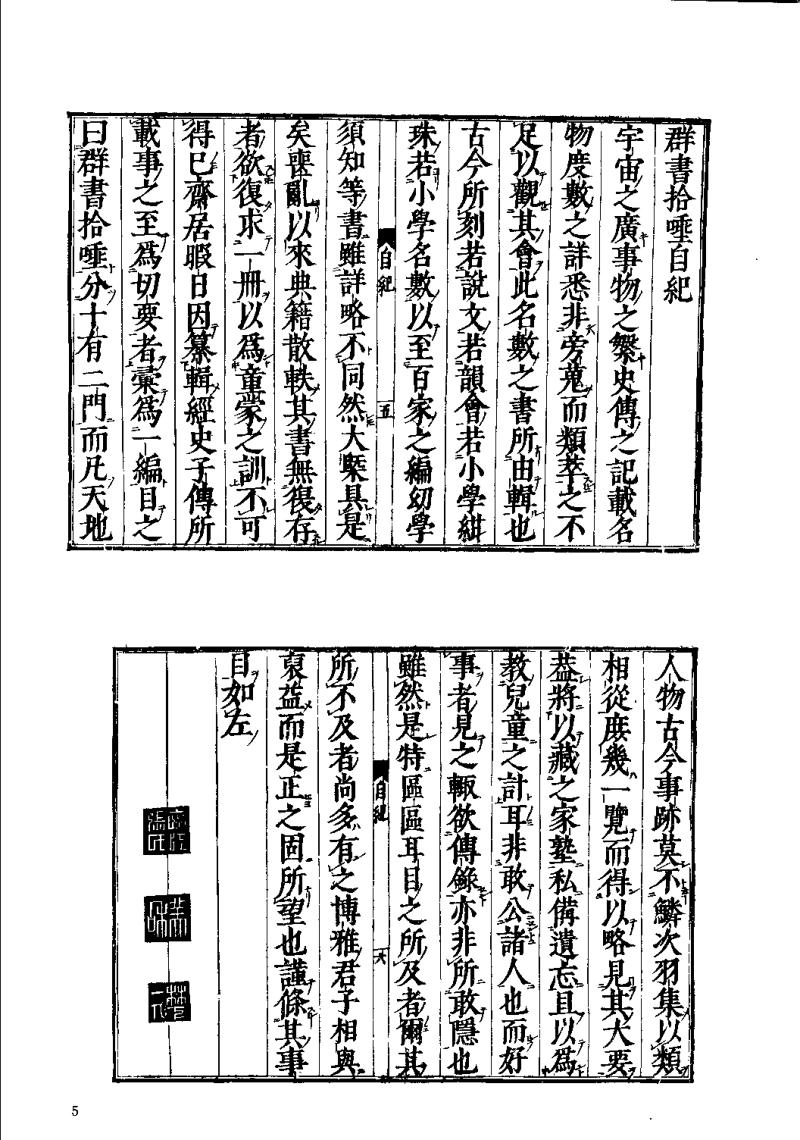 群書拾唾自紀
宇宙之廣事物之縏史傳之記載名
物度數之詳悉非旁蒐而類萃之不
足以觀其會此名數之書所由輯也
古今所刻若說文若韻會若小學紺
珠若小學名數以至百家之編幼學
自紀
五
須知等書雖詳略不同然大槩具是
矣喪亂以來典籍散軼其書無復存
者欲復求一冊以爲童蒙之訓不可
得巳齋居暇日因纂輯經史子傳所
載事之至爲切要者彙爲一編目之
曰群書拾唾分十有二門而凡天地
人物古今事跡莫不鱗次羽集以類
相從庶幾一覽而得以略見其大要
葢將以藏之家塾私備遺忘且以爲
教兒童之計耳非敢公諸人也而好
事者見之輙欲傳錄亦非所敢隱也
自紀
六
雖然是特區區耳目之所及者爾其
所不及者尚多有之博雅君子相與
裒益而是正之固所望也謹條其事
目如左
5